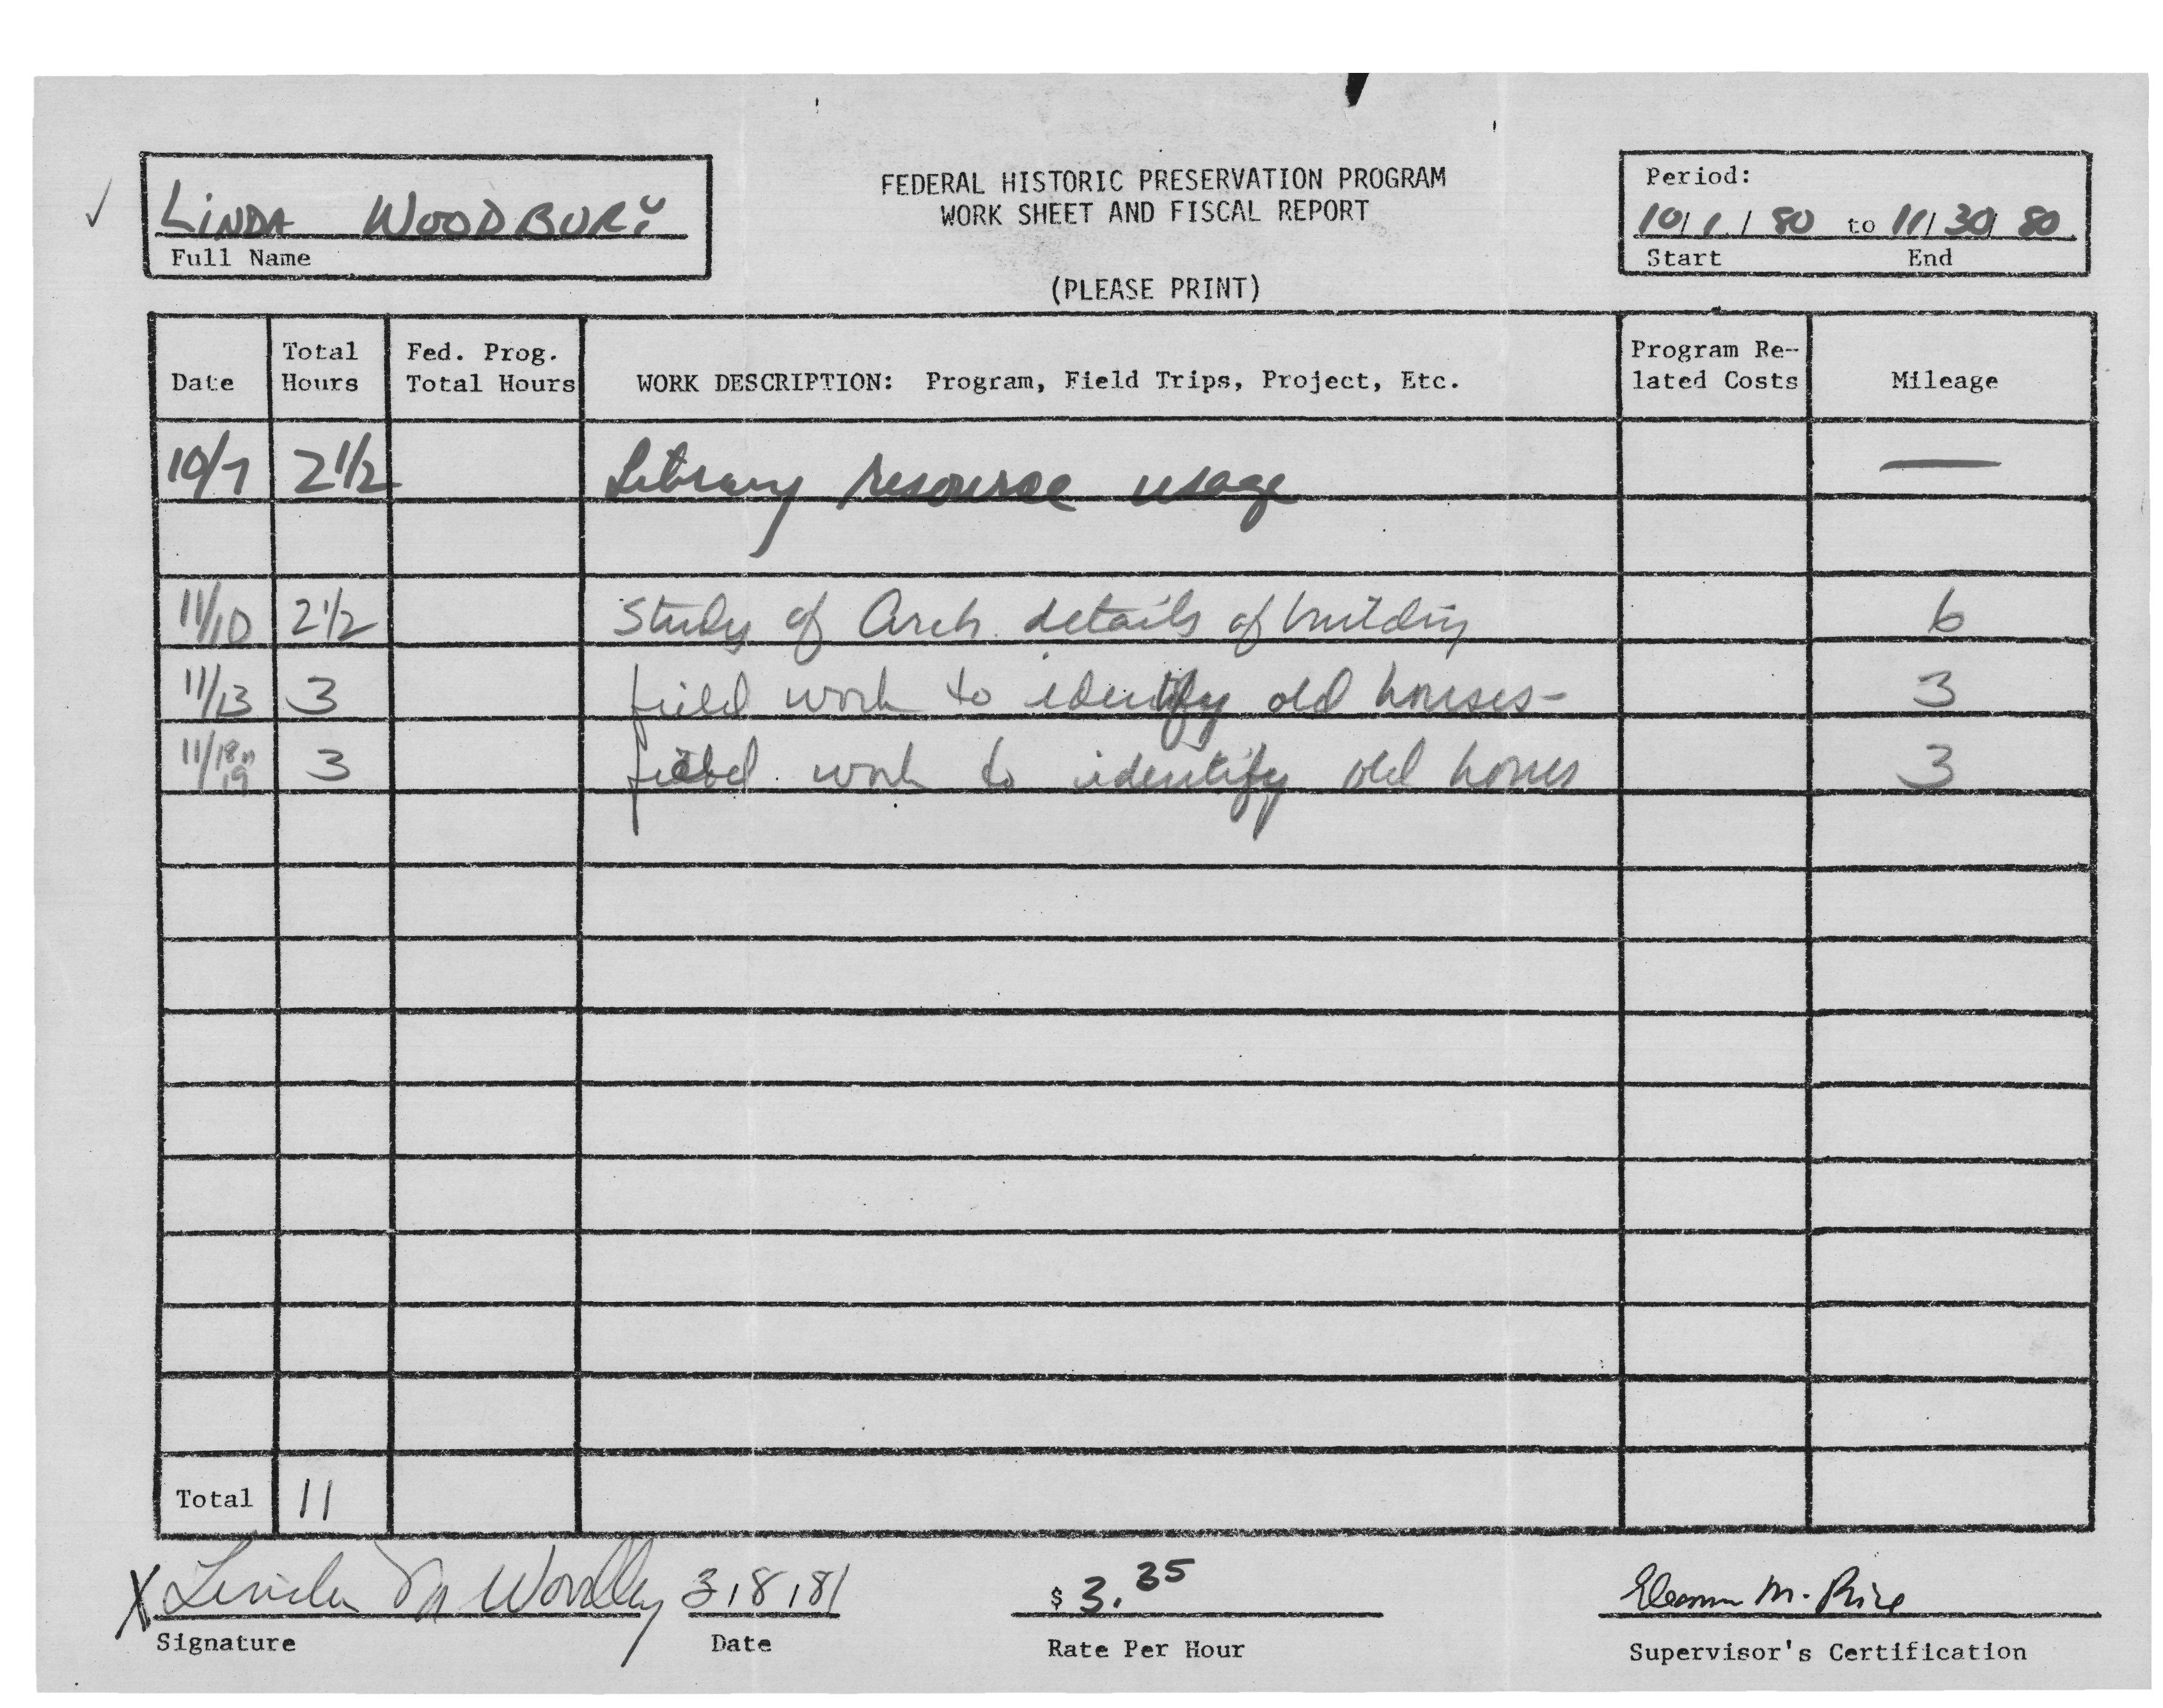 ✓ LINDA WOODBURY
Full Name
FEDERAL HISTORIC PRESERVATION PROGRAM
WORK SHEET AND FISCAL REPORT
(PLEASE PRINT)
Period:
10/1/80 to 11/30/80
Start End
Date Total Hours Fed. Prog. Total Hours WORK DESCRIPTION: Program, Field Trips, Project, Etc. Program Re- lated Costs Mileage
10/7 2 1/2 Library resource usage —
11/10 2 1/2 Study of Arch. details of building 6
11/13 3 field work to identify old houses- 3
11/18 19 3 field work to identify old homes 3
Total 11
X Linda M Woodbury 3/8/81 $ 3.35 Eleanor M. Price
Signature Date Rate Per Hour Supervisor's Certification